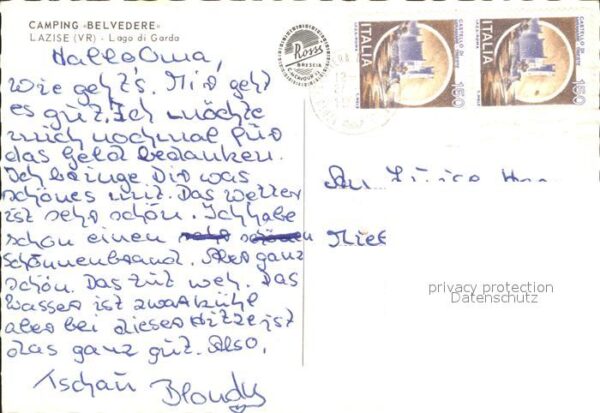 CAMPING «BELVEDERE»
LAZISE (VR) - Lago di Garda
Hallo Oma,
wie geht's. Mir geht
es gut. Ich möchte
mich nochmal für
das Geld bedanken.
Ich bringe Dir was
schönes mit. Das Wetter
ist sehr schön. Ich habe
schon einen
Schonnenbrand. Aber ganz
schön. Das tut weh. Das
Wasser ist zwar kühl
aber bei dieser Hitze ist
das ganz gut. Also,
Tschau Blondy
Ross
BRESCIA
ITALIA
150
ITALIA
150
An
privacy protection
Datenschutz